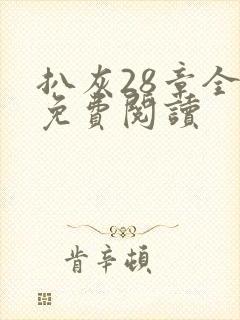 扒灰28章全
免費閱讀
肯辛頓